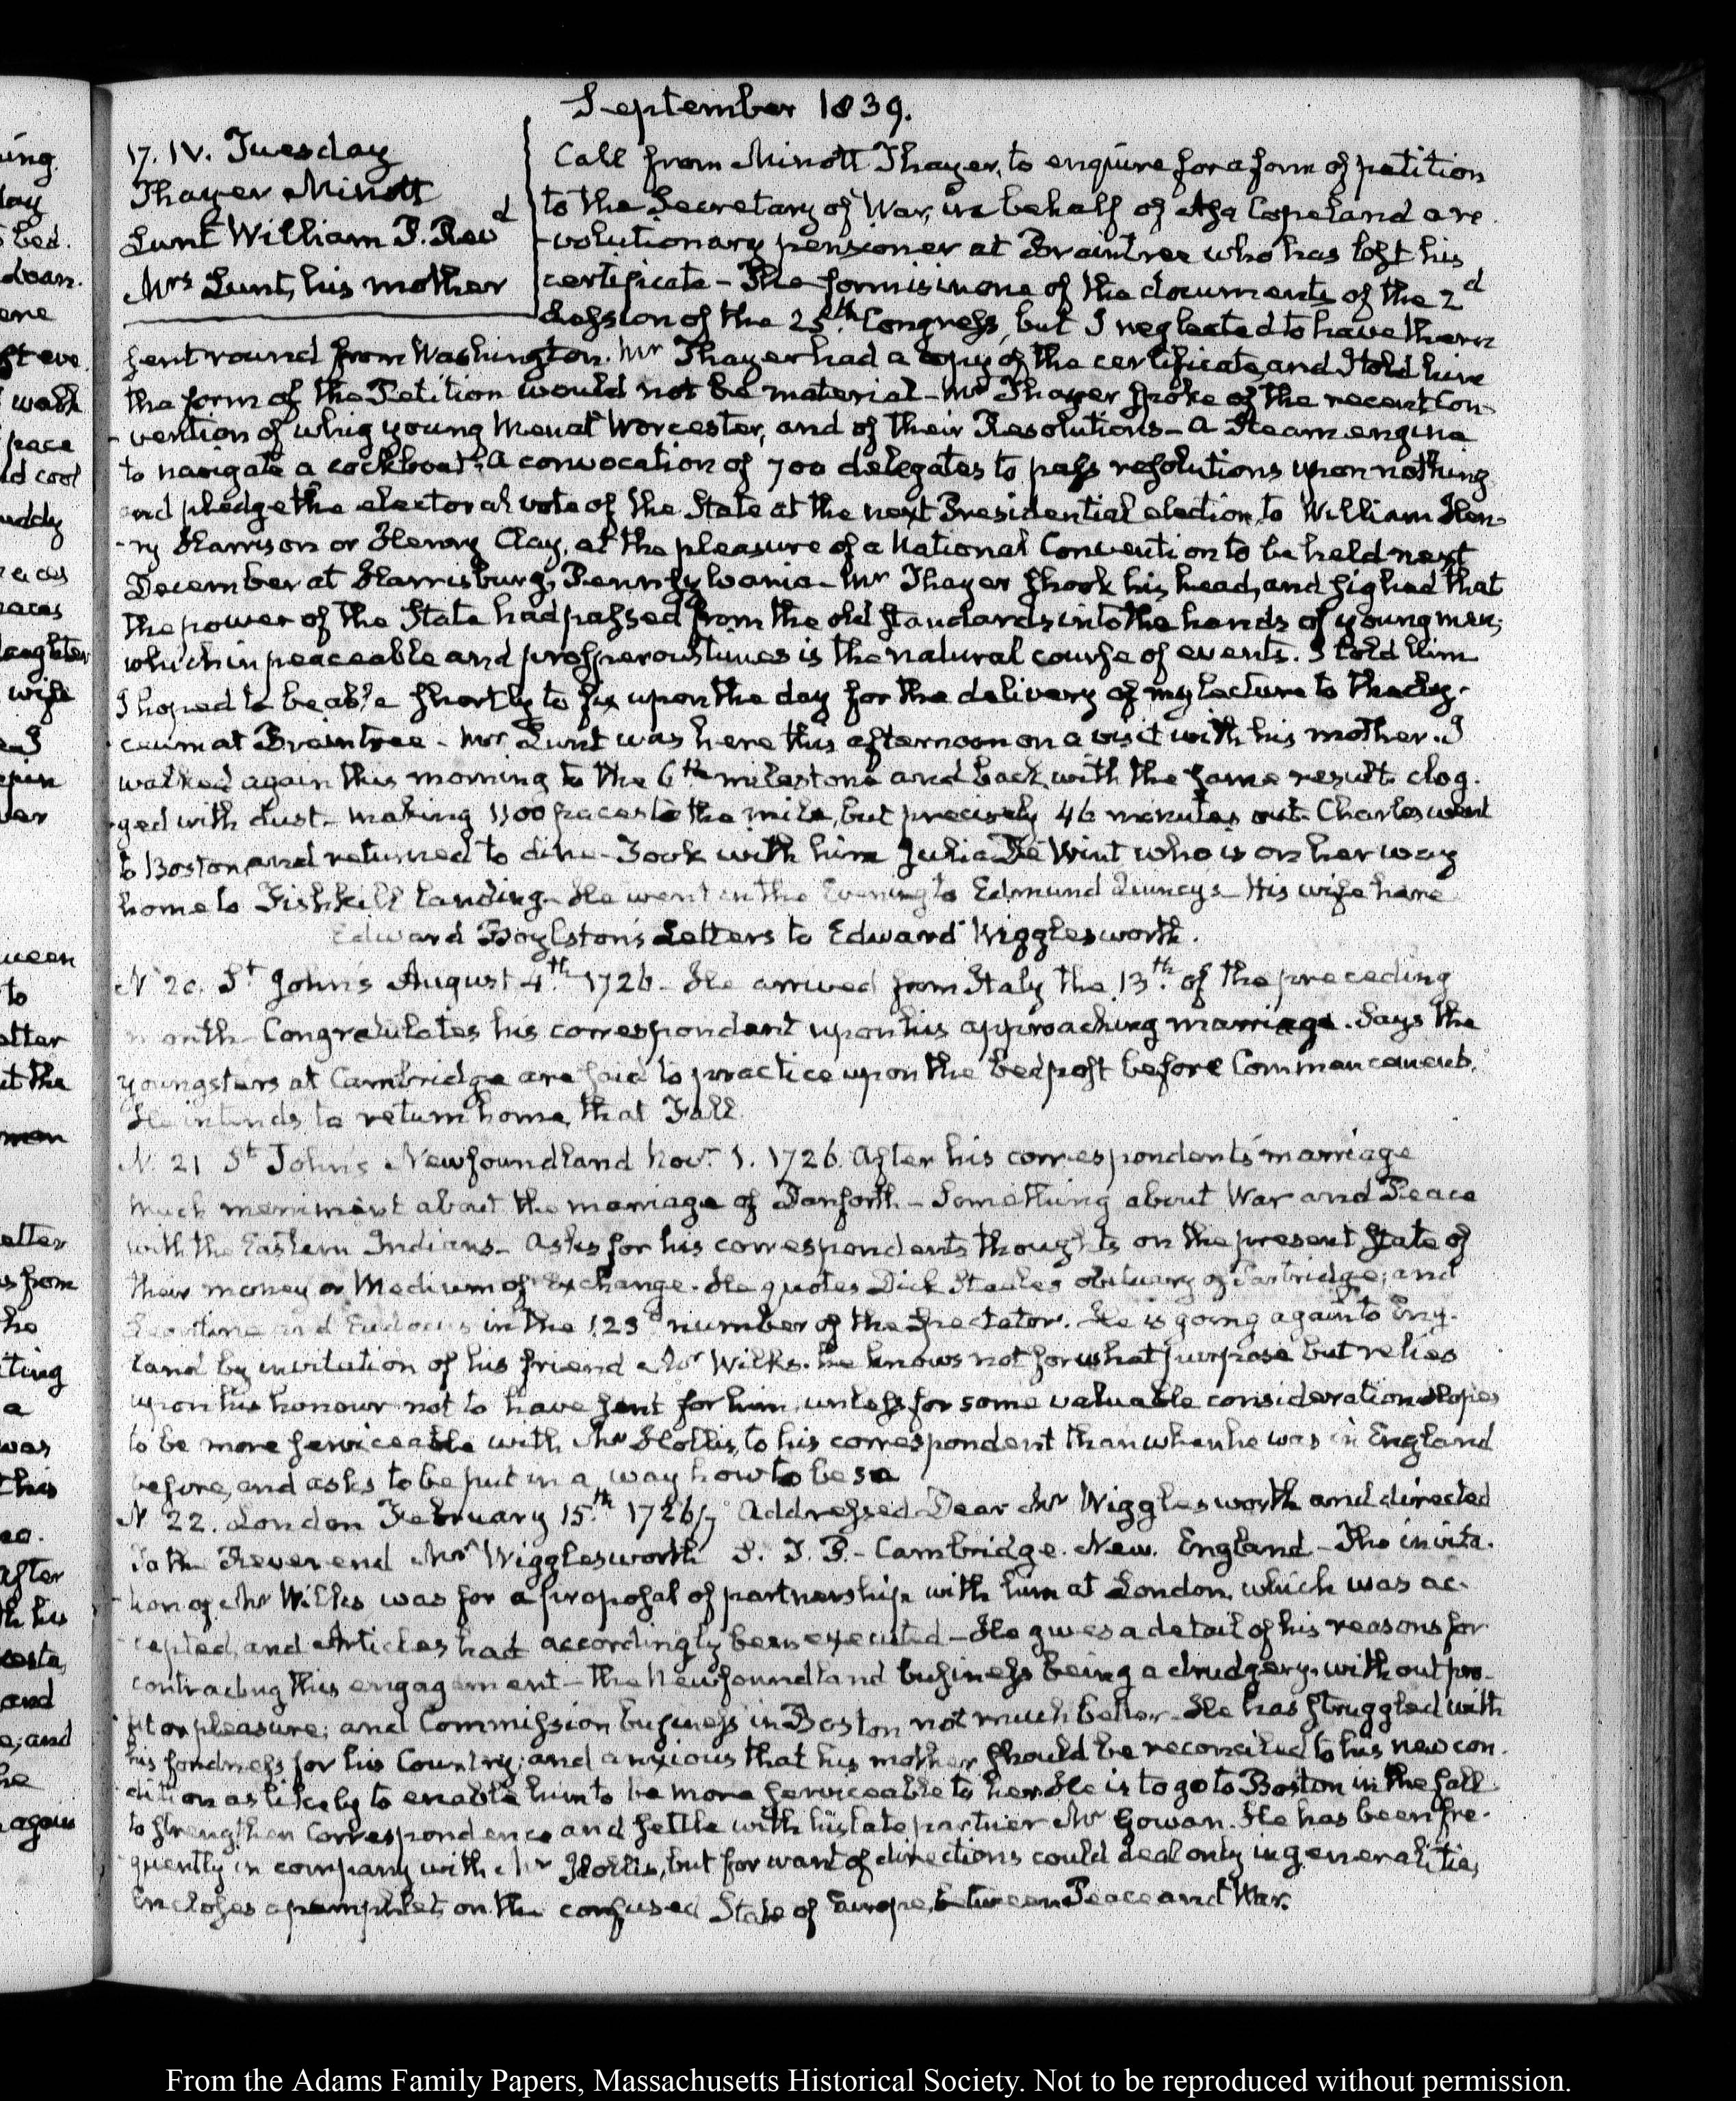 September 1839.
17. IV. Tuesday
Thayer Minott
Lunt William P. Revd
Mrs Lunt, his mother
Call from Minott Thayer, to enquire for a form of petition
to the Secretary of War, in behalf of Asa Copeland a re-
-volutionary pensioner at Braintree who has lost his
certificate - The form is in one of the documents of the 2d
Session of the 25th Congress, but I neglected to have them
sent round from Washington. Mr Thayer had a copy of the certificate, and I told him
the form of the Petition would not be material - Mr Thayer spoke of the recent Con-
-vention of whig young Men at Worcester, and of their Resolutions - A Steam engine
to navigate a cockboat - A convocation of 700 delegates to pass resolutions upon nothing
and pledge the electoral vote of the State at the next Presidential election, to William Hen-
-ry Harrison or Henry Clay, at the pleasure of a National Convention to be held next
December at Harrisburg, Pennsylvania - Mr Thayer shook his head, and sighed that
the power of the State had passed from the old standards into the hands of young men;
which in peaceable and prosperous times is the natural course of events. I told him
I hoped to be able shortly to fix upon the day for the delivery of my lecture to the Ly-
-ceum at Braintree - Mr Lunt was here this afternoon on a visit with his mother. I
walked again this morning to the 6th milestone and back, with the same result clog-
-ged with dust - making 1100 paces to the mile, but precisely 46 minutes out - Charles went
to Boston, and returned to dine - Took with him Julia De Wint who is on her way
home to Fishkill Landing - He went in the Evening to Edmund Quincy's - His wife here
Edward Boylston's Letters to Edward Wigglesworth.
N. 20. St John's August 4th 1726 - He arrived from Italy the 13th of the preceding
month - Congratulates his correspondent upon his approaching marriage. Says the
youngsters at Cambridge are said to practice upon the bedpost before Commencement.
He intends to return home that Fall.
N. 21 St John's Newfoundland Novr 1. 1726. After his correspondent's marriage
much merriment about the marriage of Danforth - Something about War and Peace
with the Eastern Indians - Asks for his correspondents thoughts on the present State of
their money or Medium of Exchange. He quotes Dick Steele's obituary of Partridge; and
Leontine and Eudoxus in the 123d number of the Spectator. He is going again to Eng-
land by invitation of his friend Mr Wilks. he knows not for what purpose but relies
upon his honour not to have sent for him, unless for some valuable consideration Hopes
to be more serviceable with Mr Hollis, to his correspondent than when he was in England
before, and asks to be put in a way how to be so
N. 22. London February 15th 1726/7 Addressed Dear Mr Wigglesworth and directed
To the Reverend Mr Wigglesworth S. T. P. - Cambridge. New. England - The invita-
-tion of Mr Wilks was for a proposal of partnership with him at London, which was ac-
-cepted, and Articles had accordingly been executed - He gives a detail of his reasons for
contracting this engagement - the Newfoundland business being a drudgery, without pro-
fit or pleasure; and Commission business in Boston not much better - He has struggled with
his fondness for his Country; and anxious that his mother should be reconciled to his new con-
dition as likely to enable him to be more serviceable to her He is to go to Boston in the fall
to strengthen Correspondence and settle with his late partner Mr Gowan. He has been fre-
-quently in company with Mr Hollis, but for want of directions could deal only in generalities,
Encloses a pamphlet, on the confused State of Europe, between Peace and War.
From the Adams Family Papers, Massachusetts Historical Society. Not to be reproduced without permission.